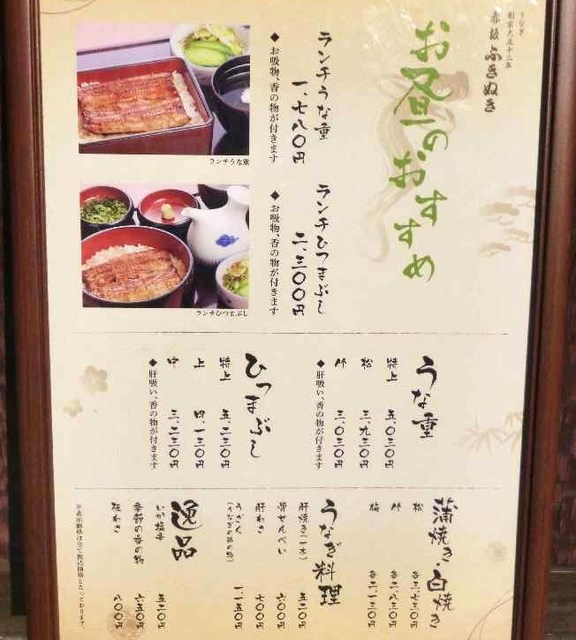 うなぎ
創業大正十二年
赤坂 ふきぬき
お昼のおすすめ
ランチうな重
一、七八〇円
◆お吸物、香の物が付きます
ランチうな重
ランチひつまぶし
二、三〇〇円
◆お吸物、香の物が付きます
ランチひつまぶし
うな重
特上 五、〇三〇円
松 三、九三〇円
竹 三、〇三〇円
◆肝吸い、香の物が付きます
ひつまぶし
特上 五、二三〇円
上 四、一三〇円
中 三、二三〇円
◆肝吸い、香の物が付きます
蒲焼き・白焼き
松 各三、七三〇円
竹 各二、八三〇円
梅 各二、一三〇円
うなぎ料理
肝焼き(一本) 五二〇円
骨せんべい 五〇〇円
肝わさ 七〇〇円
うざく
(うなぎの酢の物) 一、一五〇円
逸品
いか塩辛 五二〇円
季節の香の物 六五〇円
板わさ 八〇〇円
※表示価格は全て税込価格となっております。